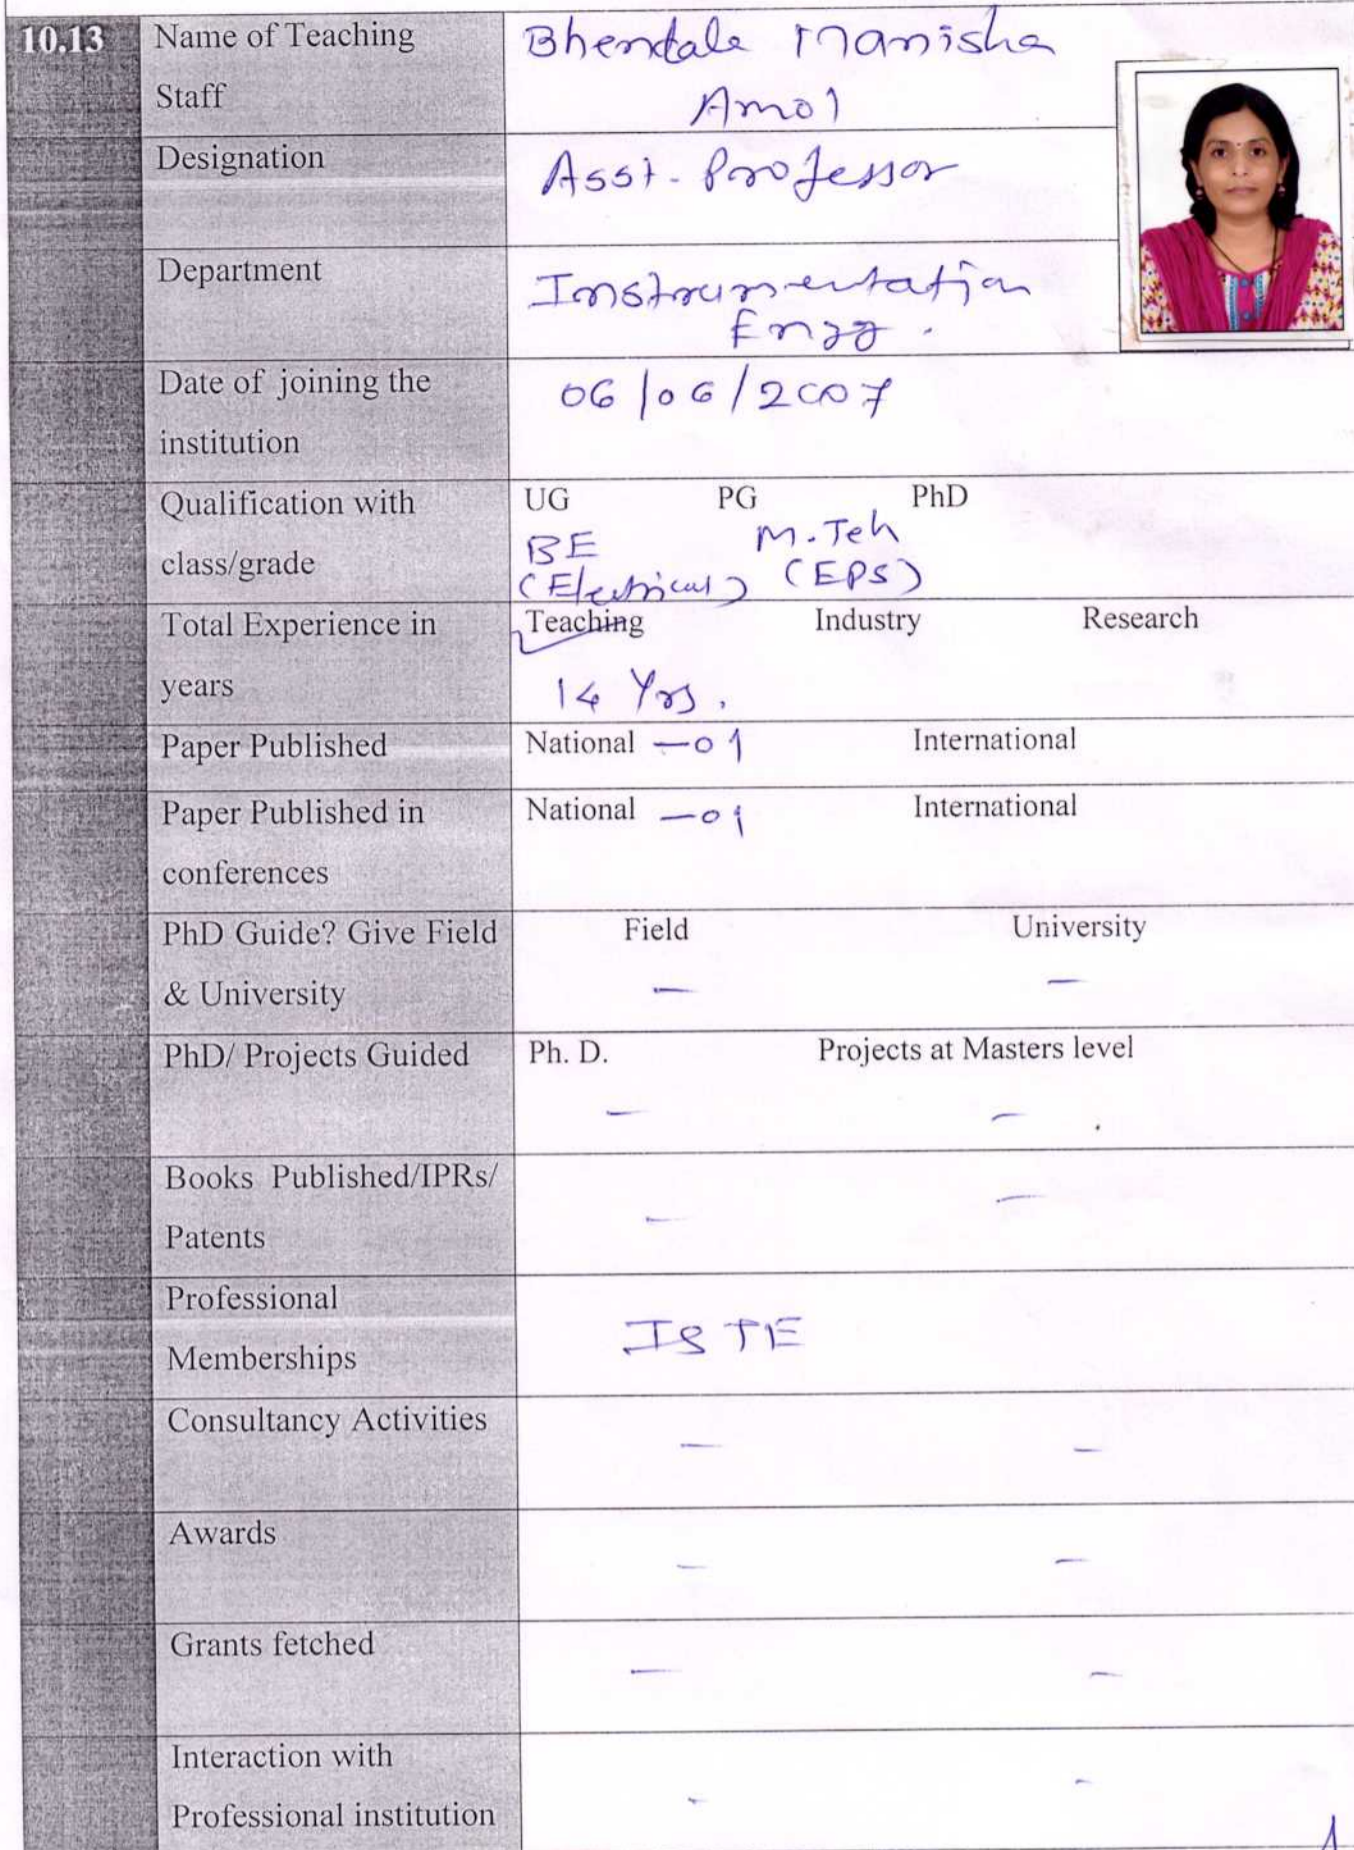 10.13 Name of Teaching Bhendale Manisha
Staff Amol
Designation Asst. Professor
Department Instrumentation
Engg.
Date of joining the 06/06/2007
institution
Qualification with UG PG PhD
class/grade BE M.Teh
(Electrical) (EPS)
Total Experience in Teaching Industry Research
years 14 Yrs.
Paper Published National —01 International
Paper Published in National —01 International
conferences
PhD Guide? Give Field Field University
& University — —
PhD/ Projects Guided Ph. D. Projects at Masters level
— —
Books Published/IPRs/ —
Patents —
Professional
Memberships ISTE
Consultancy Activities
— —
Awards
— —
Grants fetched
— —
Interaction with -
Professional institution -